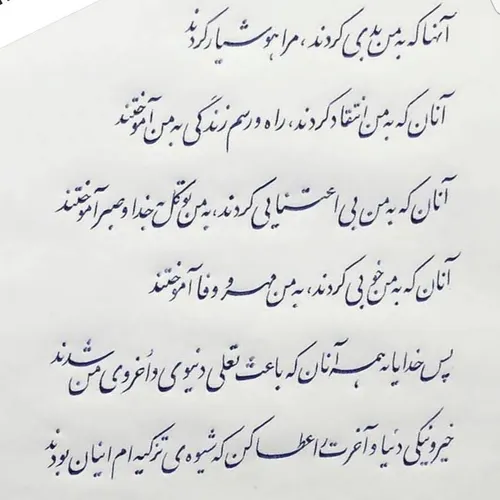 آنها که به من بدی کردند، مرا هوشیار کردند
آنان که به من انتقاد کردند، راه و رسم زندگی به من آموختند
آنان که به من بی اعتنایی کردند، به من توکل به خدا و صبر آموختند
آنان که به من خوبی کردند، به من مهر و وفا آموختند
پس خدایا به همه آنان که باعث تعلی دنیوی و اُخروی من شدند
خیر و نیکی دنیا و آخرت را عطا کن که شیوه ی تزکیه ام اینان بودند